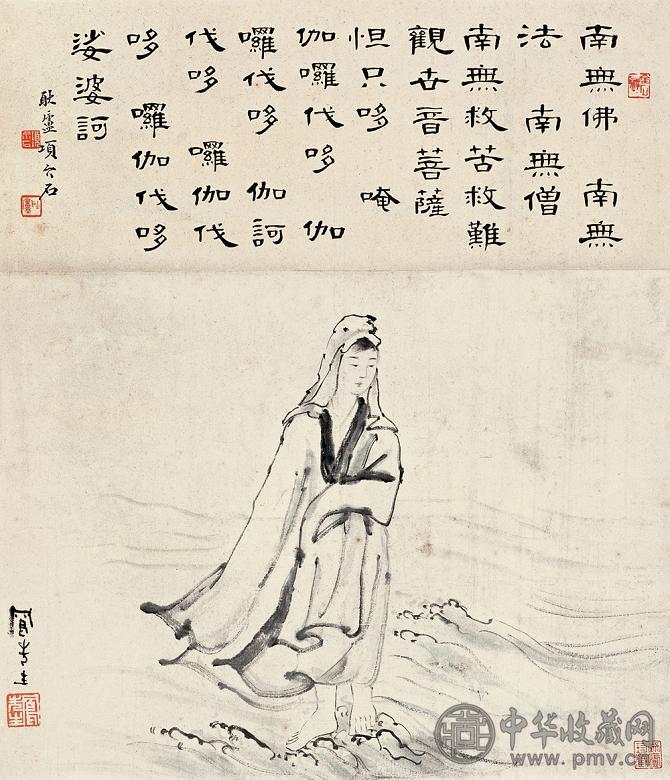 南無佛 南無
法 南無僧
南無救苦救難
觀世音菩薩
怛只哆 唵
伽囉伐哆 伽
囉伐哆 伽訶
伐哆 囉伽伐
哆 囉伽伐哆
娑婆訶
耿虛項介石
中华收藏网
www.pmv.cn